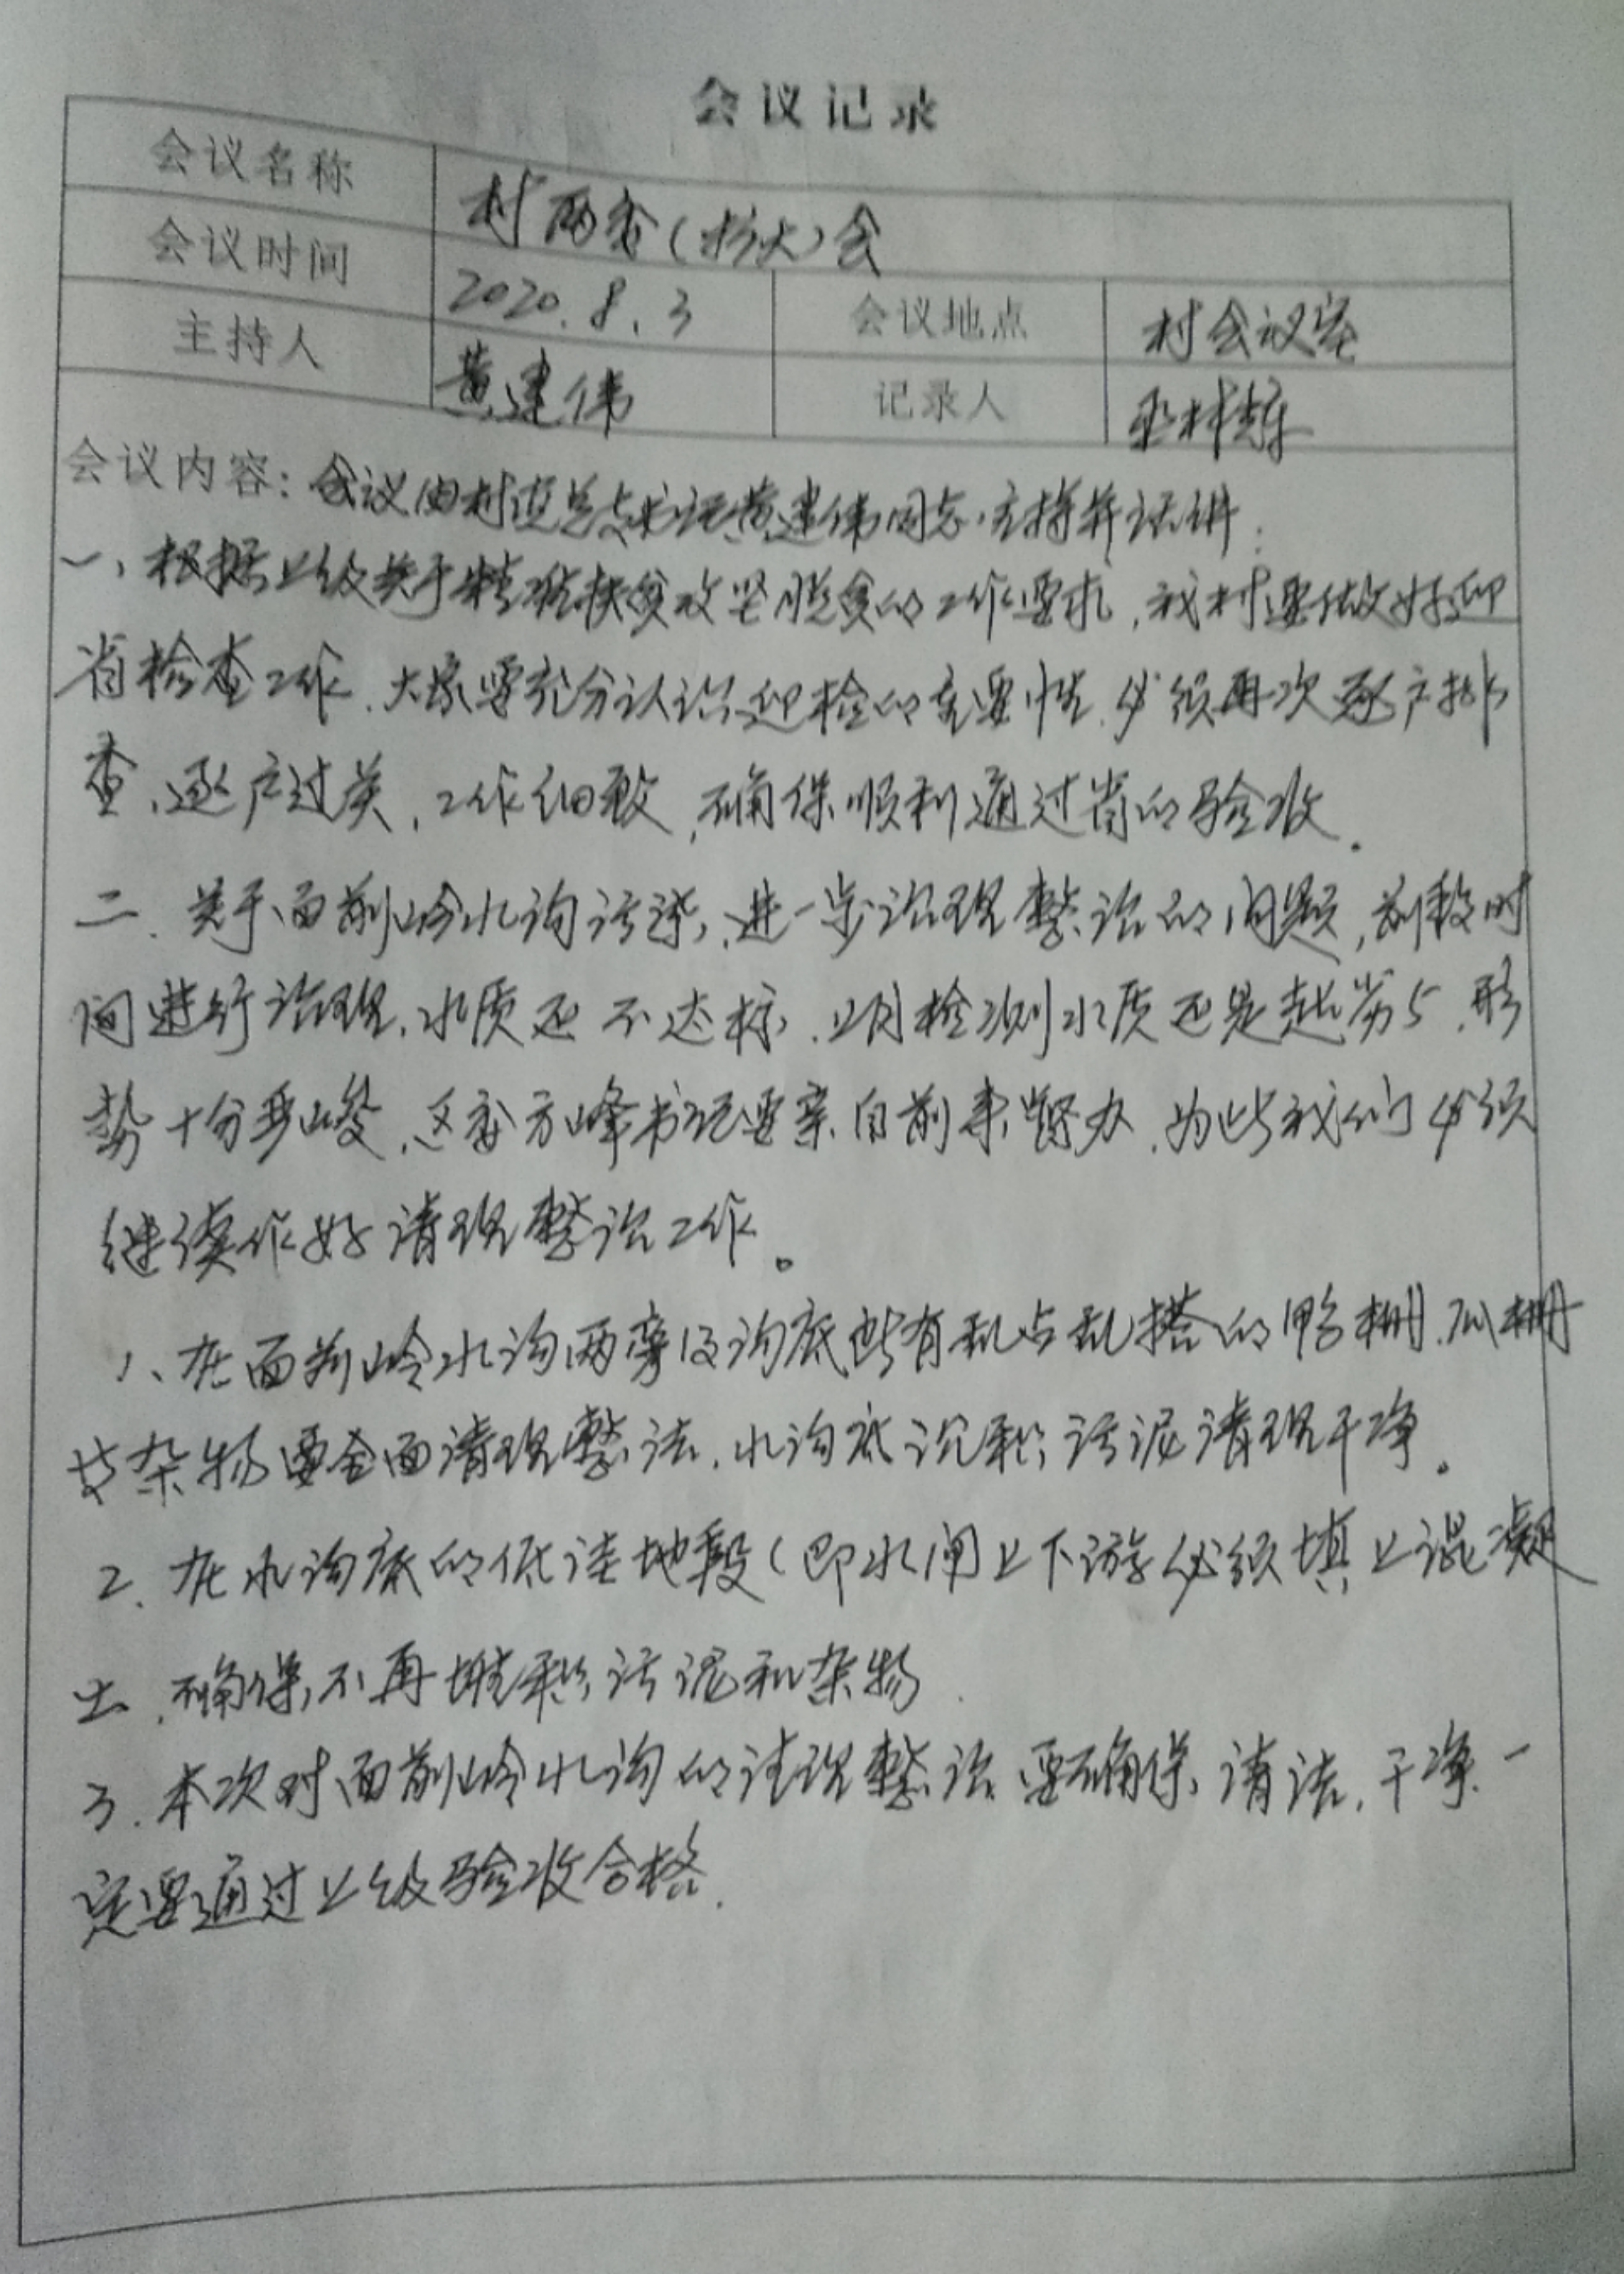 会议记录
会议名称 村两委（扩大）会
会议时间 2020.8.3 会议地点 村会议室
主持人 黄建伟 记录人
会议内容：会议由村党总支书记黄建伟同志主持并话讲：
一、根据上级关于精准扶贫攻坚脱贫的工作要求，我村要做好迎
省检查工作，大家要充分认识迎检的重要性，必须再次逐户排
查，逐户过关，工作细致，确保顺利通过省的验收。
二、关于面前岭水沟污染，进一步治理整治的问题，前段时
间进行治理，水质还不达标，上月检测水质还是超劣5，形
势十分严峻，区委方峰书记要亲自前来督办，为此我们必须
继续作好清理整治工作。
1、在面前岭水沟两旁及沟底所有乱占乱搭的鸭棚、瓜棚
及杂物要全面清理整洁，水沟底沉积污泥清理干净。
2、在水沟底的低洼地段（即水闸上下游必须填上混凝
土，确保不再堆积污泥和杂物
3、本次对面前岭水沟的清理整治要确保清洁，干净，一
定要通过上级验收合格。